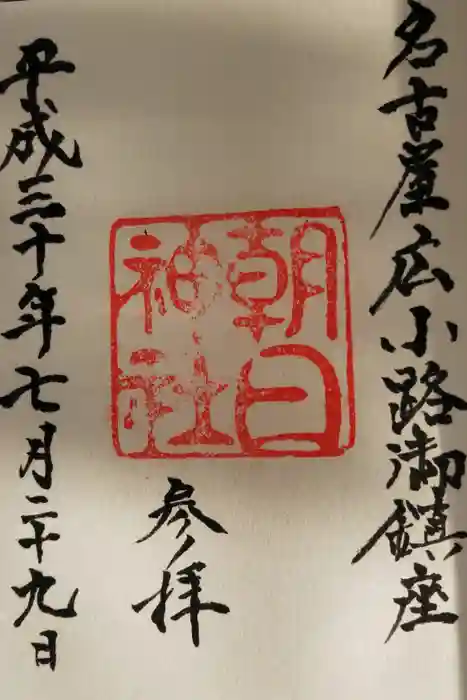 名古屋広小路御鎮座
朝日
神社
参拝
平成三十年七月二十九日